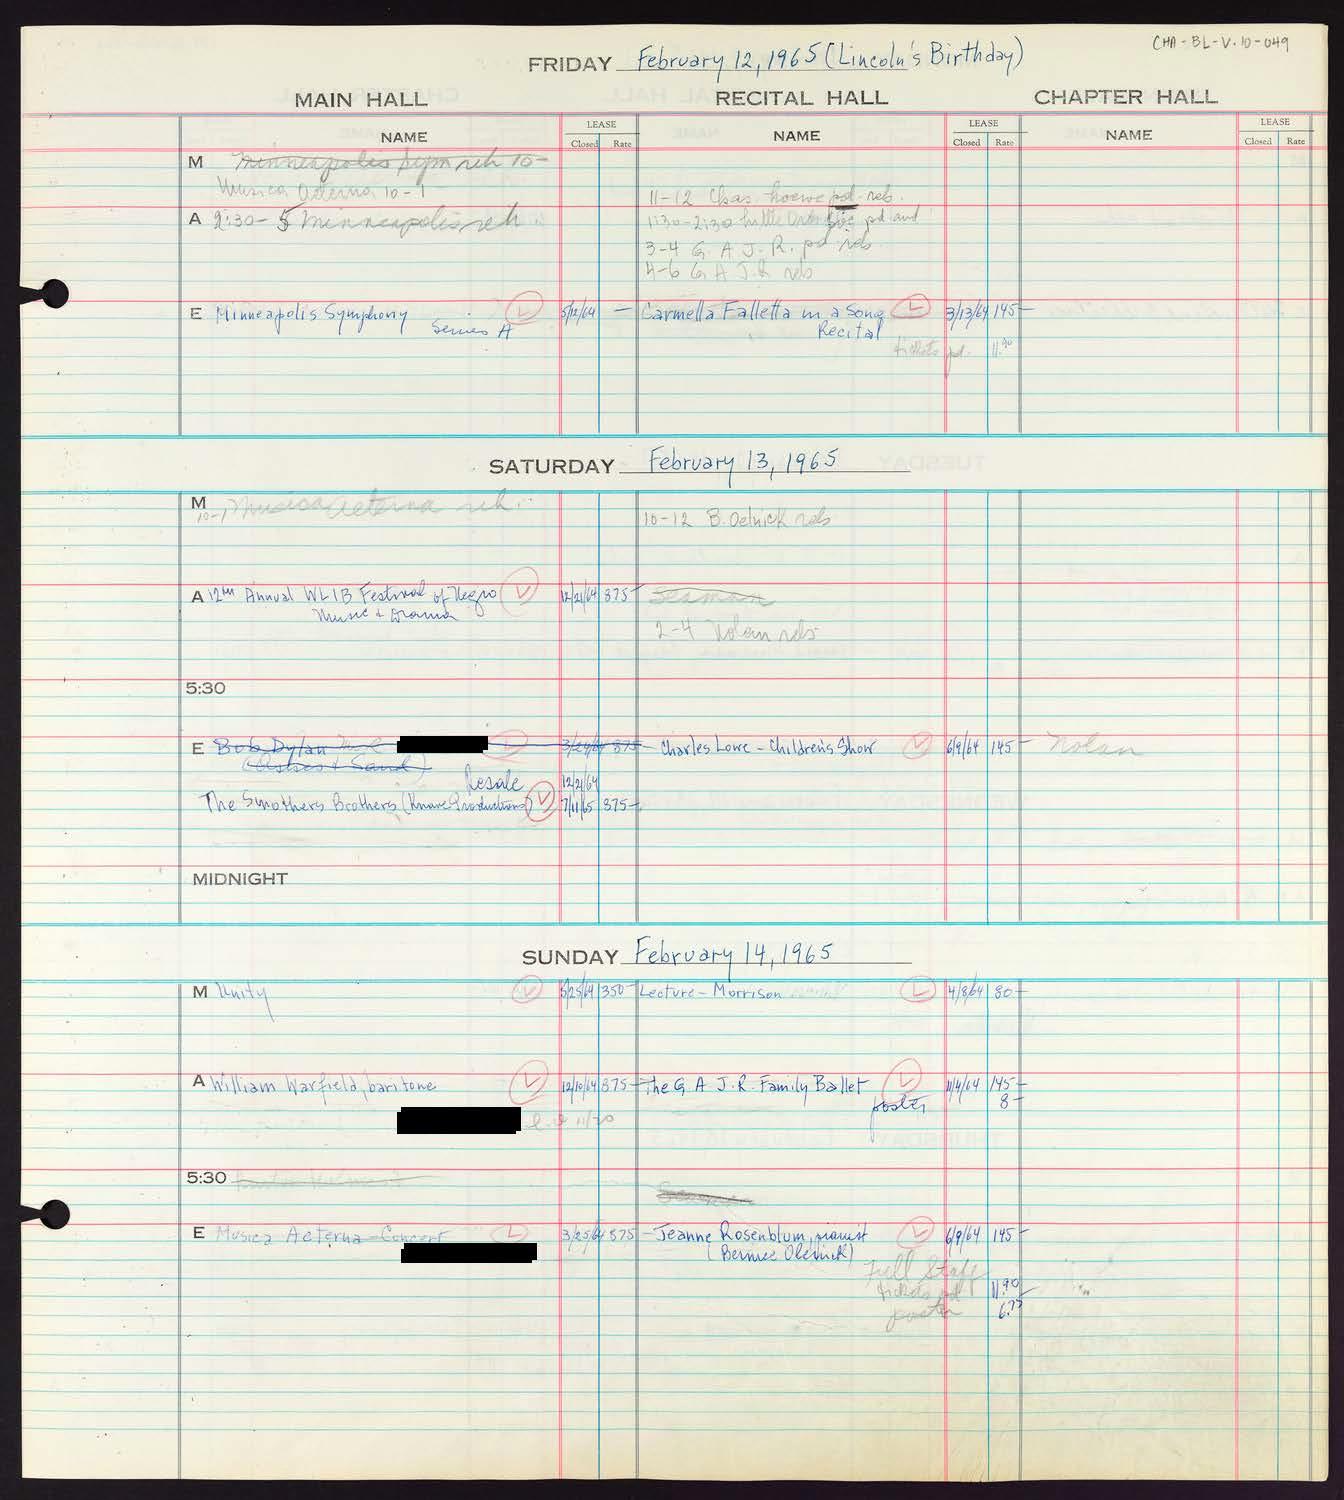 CHA-BL-V.10-049
FRIDAY February 12, 1965 (Lincoln's Birthday)
MAIN HALL RECITAL HALL CHAPTER HALL
NAME LEASE Closed Rate NAME LEASE Closed Rate NAME LEASE Closed Rate
M Minneapolis Sym reh 10-
Musica Aeterna 10-1
11-12 Chas. pd. reh.
A 2:30-5 Minneapolis reh
1:30-2:30 Little pd and
3-4 G. A. J. R. pd reh
4-6 G A J R reh
E Minneapolis Symphony 5/12/64 — Carmella Falletta in a Song 3/13/64 145-
Series A Recital
tickets pd. 11.90
SATURDAY February 13, 1965
M 10-1 Musica Aeterna reh.
10-12 B. Oelnick reh
A 12th Annual WLIB Festival of Negro 12/21/64 875- Seaman
Music & Drama
2-4 Nolan reh
5:30
E Bob Dylan 3/24/64 875- Charles Lowe - Children's Show 6/9/64 145- Nolan
(Ashes & Sand)
Resale 12/21/64
The Smothers Brothers (Knave Productions) 7/11/65 875-
MIDNIGHT
SUNDAY February 14, 1965
M Unity 5/25/64 350- Lecture - Morrison 4/8/64 80-
A William Warfield, baritone 12/10/64 875- The G A J. R. Family Ballet 11/4/64 145-
poster 8-
11/20
5:30
E Musica Aeterna - Concert 3/25/64 875- Jeanne Rosenblum, pianist 6/9/64 145-
(Bernice Oletnick)
Full Staff
tickets pd 11.90
poster 6.75